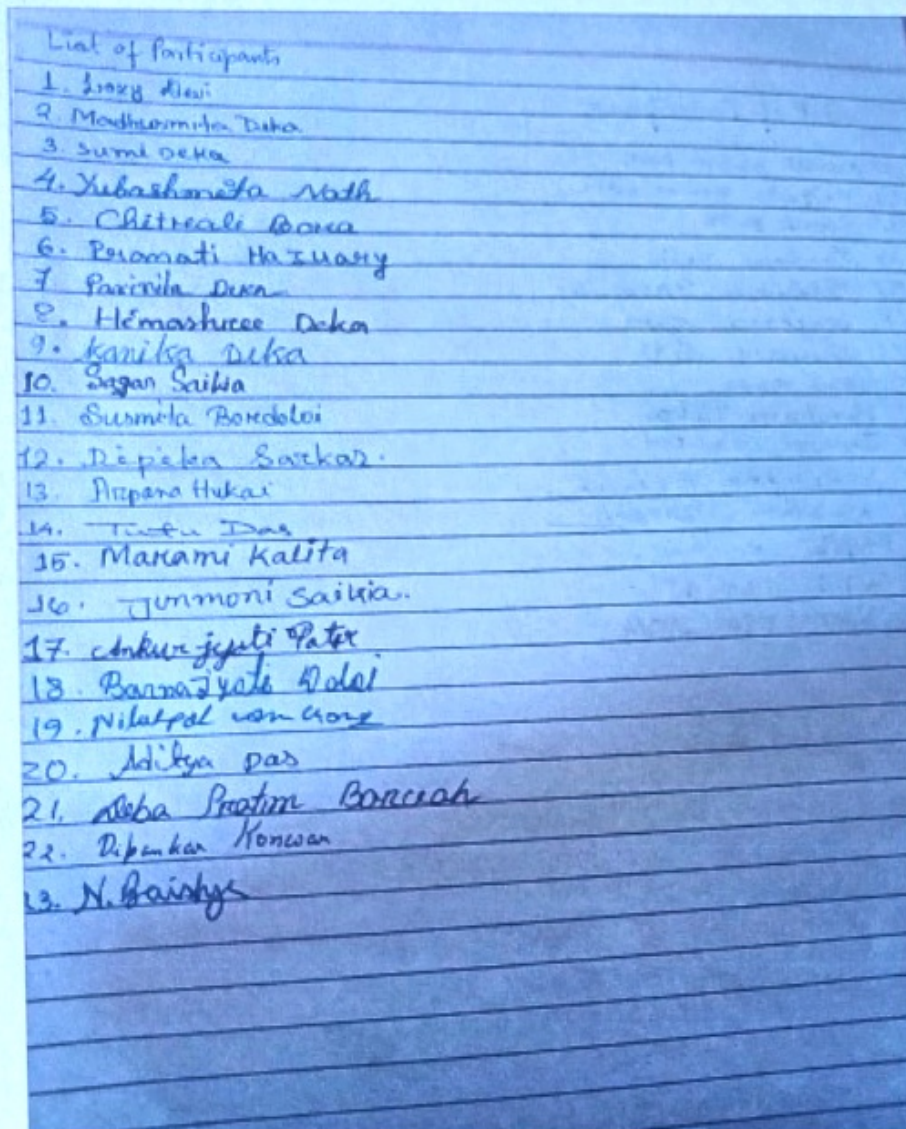 List of Participants
1. Devi
2. Madhusmita Deka
3. Sumi Deka
4. Yubashmita Nath
5. Chitrali Bora
6. Pramati Hazuary
7 Parinita Deka
8. Himashree Deka
9. Kanika Deka
10. Sagan Saikia
11. Susmita Bordoloi
12. Dipika Sarkar.
13. Arpana Hukai
14. Das
15. Manami Kalita
16. Junmoni Saikia.
17. Ankur jyoti Pater
18. Barnajyoti Doloi
19. Nilutpal
20. Aditya Das
21. Deba Pratim Baruah
22. Dipankar Konwar
23. N. Baishya